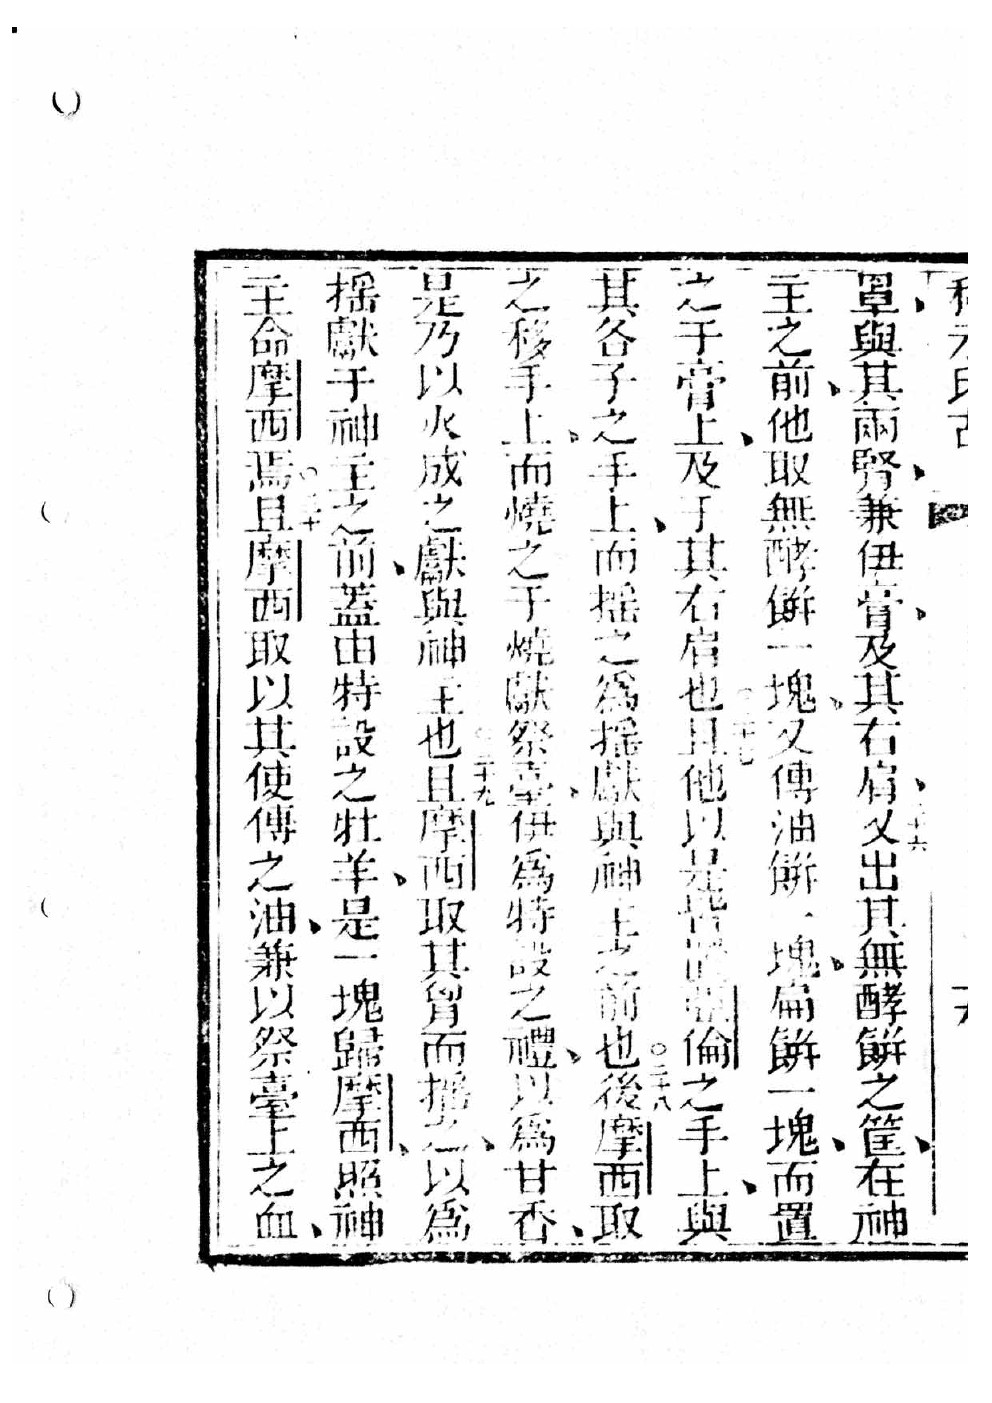 罩與其兩腎兼伊膏及其右肩又出其無酵餅之筐在神
主之前他取無酵餅一塊又傅油餅一塊扁餅一塊而置
之于膏上及于其右肩也且他以是皆置亞倫之手上與
其各子之手上而搖之爲搖獻與神主之前也後摩西取
之移手上而燒之于燒獻祭臺伊爲特設之禮以爲甘香
是乃以火成之獻與神主也且摩西取其胷而搖之以爲
搖獻于神主之前蓋由特設之牡羊是一塊歸摩西照神
主命摩西焉且摩西取以其使傅之油兼以祭臺上之血